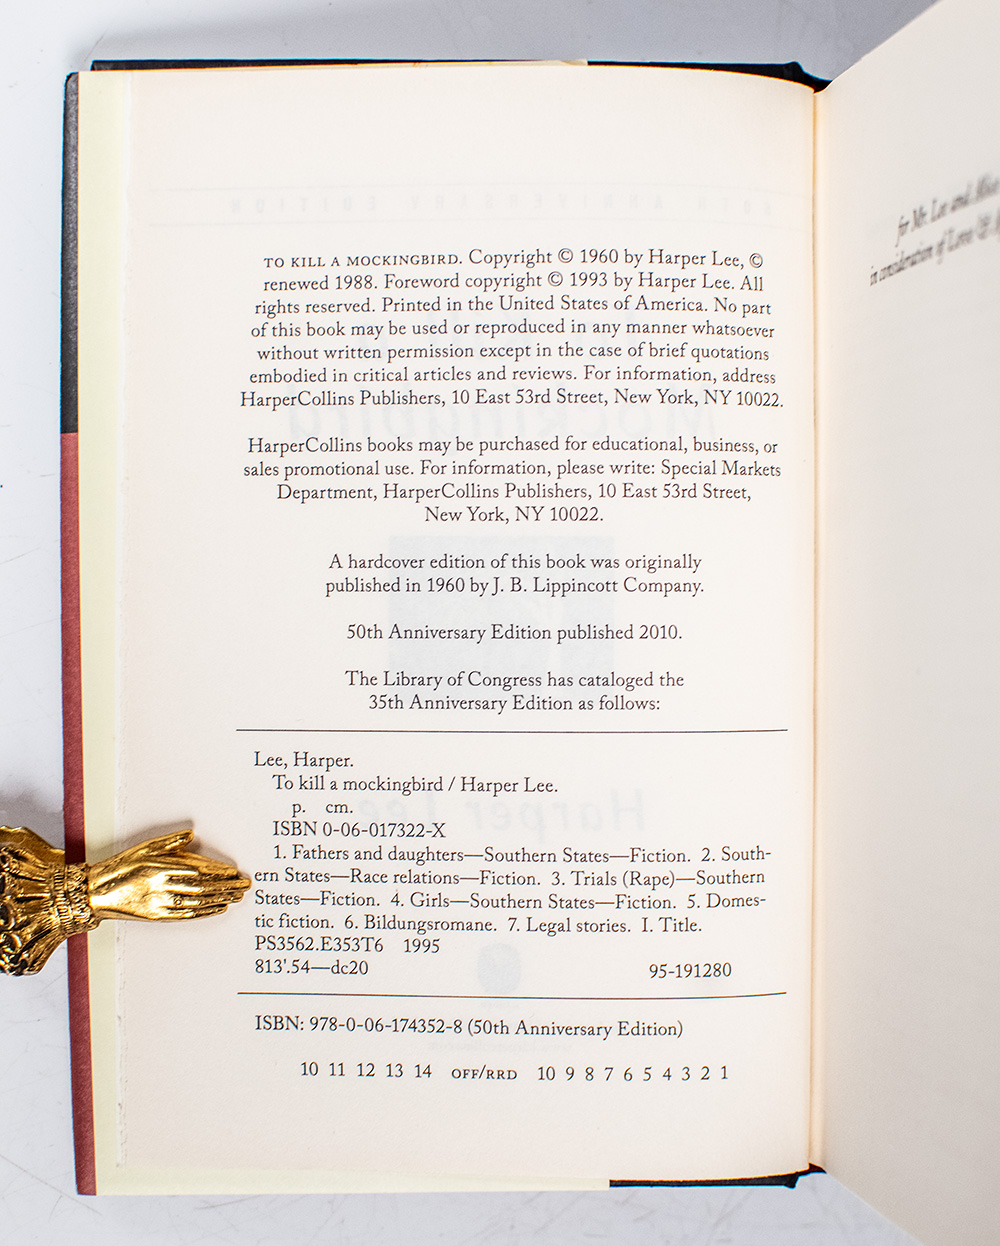 TO KILL A MOCKINGBIRD. Copyright © 1960 by Harper Lee, ©
renewed 1988. Foreword copyright © 1993 by Harper Lee. All
rights reserved. Printed in the United States of America. No part
of this book may be used or reproduced in any manner whatsoever
without written permission except in the case of brief quotations
embodied in critical articles and reviews. For information, address
HarperCollins Publishers, 10 East 53rd Street, New York, NY 10022.
HarperCollins books may be purchased for educational, business, or
sales promotional use. For information, please write: Special Markets
Department, HarperCollins Publishers, 10 East 53rd Street,
New York, NY 10022.
A hardcover edition of this book was originally
published in 1960 by J. B. Lippincott Company.
50th Anniversary Edition published 2010.
The Library of Congress has cataloged the
35th Anniversary Edition as follows:
Lee, Harper.
To kill a mockingbird / Harper Lee.
p. cm.
ISBN 0-06-017322-X
1. Fathers and daughters—Southern States—Fiction. 2. South-
ern States—Race relations—Fiction. 3. Trials (Rape)—Southern
States—Fiction. 4. Girls—Southern States—Fiction. 5. Domes-
tic fiction. 6. Bildungsromane. 7. Legal stories. I. Title.
PS3562.E353T6 1995
813'.54—dc20 95-191280
ISBN: 978-0-06-174352-8 (50th Anniversary Edition)
10 11 12 13 14 OFF/RRD 10 9 8 7 6 5 4 3 2 1
for Mr. Lee and
in consideration of Love &